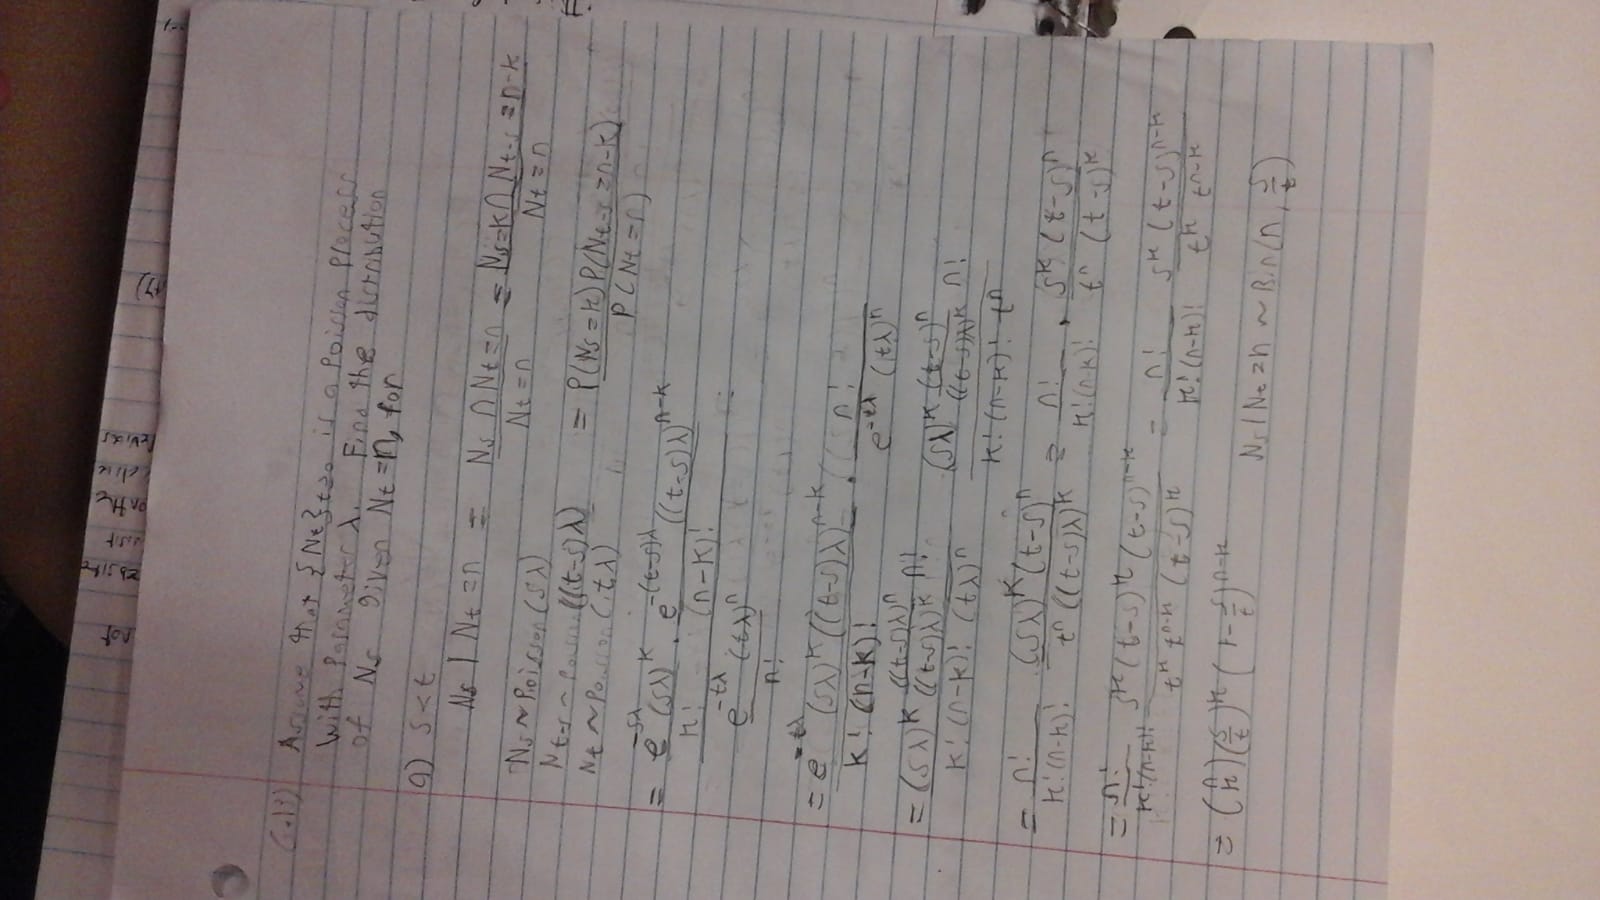 Assume that {N_t}_{t≥0} is a Poisson Process
with Parameter λ. Find the distribution
of N_s given N_t = n, for
a) s < t
N_s | N_t = n = (N_s ∩ N_t = n)/(N_t = n) = (N_s = k ∩ N_{t-s} = n-k)/(N_t = n)
N_s ~ Poisson(sλ)
N_{t-s} ~ Poisson((t-s)λ) = P(N_s = k) P(N_{t-s} = n-k)/P(N_t = n)
N_t ~ Poisson(tλ)
= (e^{-sλ} (sλ)^k / k! · e^{-(t-s)λ} ((t-s)λ)^{n-k} / (n-k)!) / (e^{-tλ} (tλ)^n / n!)
= e^{-tλ} (sλ)^k ((t-s)λ)^{n-k} / (k! (n-k)!) · n! / (e^{-tλ} (tλ)^n)
= (sλ)^k ((t-s)λ)^n/((t-s)λ)^k n! / (k! (n-k)! (tλ)^n) (sλ)^k (t-s)^n/((t-s)λ)^k n! / (k! (n-k)! t^n)
= n!/(k!(n-k)!) (sλ)^k (t-s)^n / (t^n ((t-s)λ)^k) = n!/(k!(n-k)!) · s^k (t-s)^n / (t^n (t-s)^k)
= n!/(k!(n-k)!) s^k (t-s)^k (t-s)^{n-k} / (t^k t^{n-k} (t-s)^k) = n!/(k!(n-k)!) s^k (t-s)^{n-k} / (t^k t^{n-k})
= (n k) (s/t)^k (1 - s/t)^{n-k}
N_s | N_t = n ~ Bin(n, s/t)